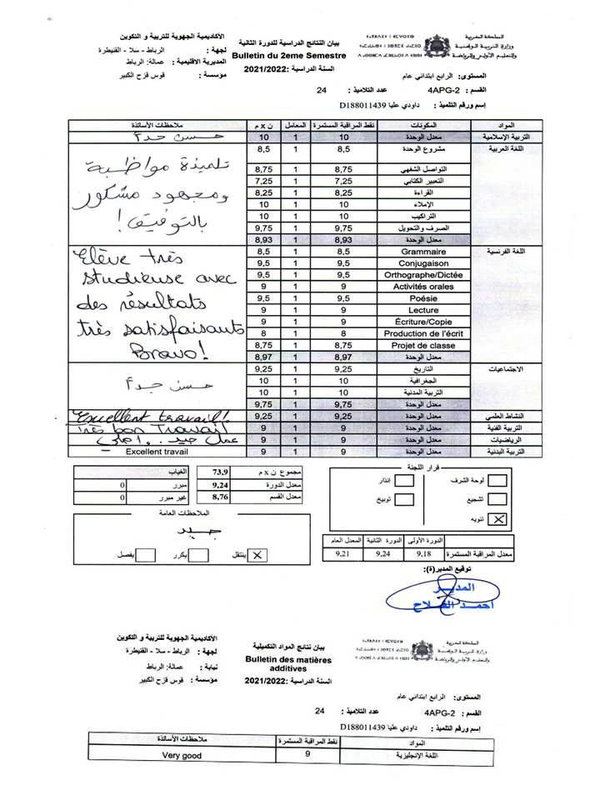 المملكة المغربية
وزارة التربية الوطنية
والتعليم الأولي والرياضة
بيان النتائج الدراسية للدورة الثانية
Bulletin du 2eme Semestre
السنة الدراسية :2021/2022
الأكاديمية الجهوية للتربية و التكوين
لجهة : الرباط - سلا - القنيطرة
المديرية الاقليمية : عمالة: الرباط
مؤسسة : قوس قزح الكبير
المستوى: الرابع ابتدائي عام
القسم : 4APG-2 عدد التلاميذ : 24
إسم ورقم التلميذ : داودي عليا D188011439
المواد المكونات نقط المراقبة المستمرة المعامل ن x م ملاحظات الأساتذة
التربية الإسلامية معدل الوحدة 10 1 10 حسن جدا
اللغة العربية مشروع الوحدة 8,5 1 8,5
التواصل الشفهي 8,75 1 8,75
التعبير الكتابي 7,25 1 7,25
القراءة 8,25 1 8,25
الإملاء 10 1 10
التراكيب 10 1 10
الصرف والتحويل 9,75 1 9,75
معدل الوحدة 8,93 1 8,93
تلميذة مواظبة
ومجهود مشكور
بالتوفيق!
اللغة الفرنسية Grammaire 8,5 1 8,5
Conjugaison 9,5 1 9,5
Orthographe/Dictée 9,5 1 9,5
Activités orales 9 1 9
Poésie 9,5 1 9,5
Lecture 9 1 9
Écriture/Copie 9 1 9
Production de l'écrit 8 1 8
Projet de classe 8,75 1 8,75
معدل الوحدة 8,97 1 8,97
Elève très
studieuse avec
des résultats
très satisfaisants
Bravo!
الاجتماعيات التاريخ 9,25 1 9,25
الجغرافية 10 1 10
التربية المدنية 10 1 10
معدل الوحدة 9,75 1 9,75
حسن جدا
النشاط العلمي معدل الوحدة 9,25 1 9,25 Excellent travail!
التربية الفنية معدل الوحدة 9 1 9 Très bon Travail
الرياضيات معدل الوحدة 9 1 9 عمل جيد
التربية البدنية معدل الوحدة 9 1 9 Excellent travail
قرار اللجنة
لوحة الشرف إنذار
تشجيع توبيخ
تنويه X
مجموع ن x م 73,9
معدل الدورة 9,24
معدل القسم 8,76
الغياب
مبرر 0
غير مبرر 0
الملاحظات العامة
جيد
ينتقل X يكرر يفصل
الدورة الأولى الدورة الثانية المعدل العام
معدل المراقبة المستمرة 9,18 9,24 9,21
توقيع المدير(ة):
المدير
احمد الفلاح
المملكة المغربية
وزارة التربية الوطنية
والتعليم الأولي والرياضة
بيان نتائج المواد التكميلية
Bulletin des matières
additives
السنة الدراسية :2021/2022
الأكاديمية الجهوية للتربية و التكوين
لجهة : الرباط - سلا - القنيطرة
نيابة : عمالة: الرباط
مؤسسة : قوس قزح الكبير
المستوى: الرابع ابتدائي عام
القسم : 4APG-2 عدد التلاميذ : 24
إسم ورقم التلميذ : داودي عليا D188011439
المواد نقط المراقبة المستمرة ملاحظات الأساتذة
اللغة الإنجليزية 9 Very good